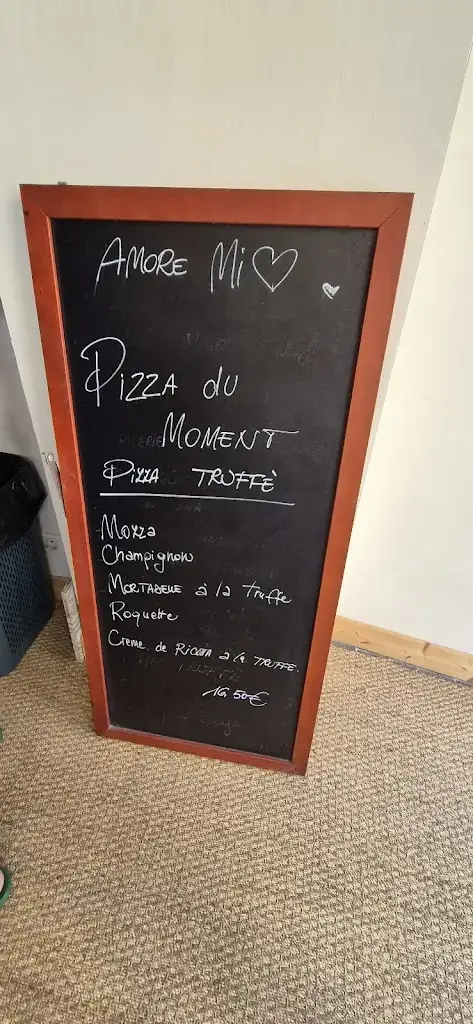 AMORE Mi♡
PIZZA du
MOMENT
PIZZA TRUFFÈ
Mozza
Champignon
MORTADELLE à la truffe
Roquette
Creme de RICOTTA à la TRUFFE.
16,50€